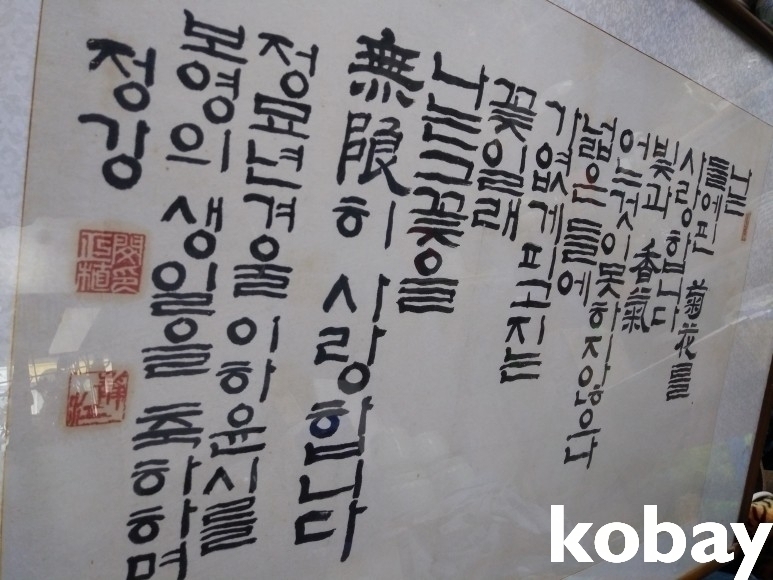 나는
들에핀 菊花를
사랑합니다
빛과 香氣
어느것이못하지않으나
넓은 들에
가엾게피고지는
꽃일래
나는그꽃을
無限히 사랑합니다
정묘년겨울 이하윤시를
보영의 생일을 축하하며
정강
kobay